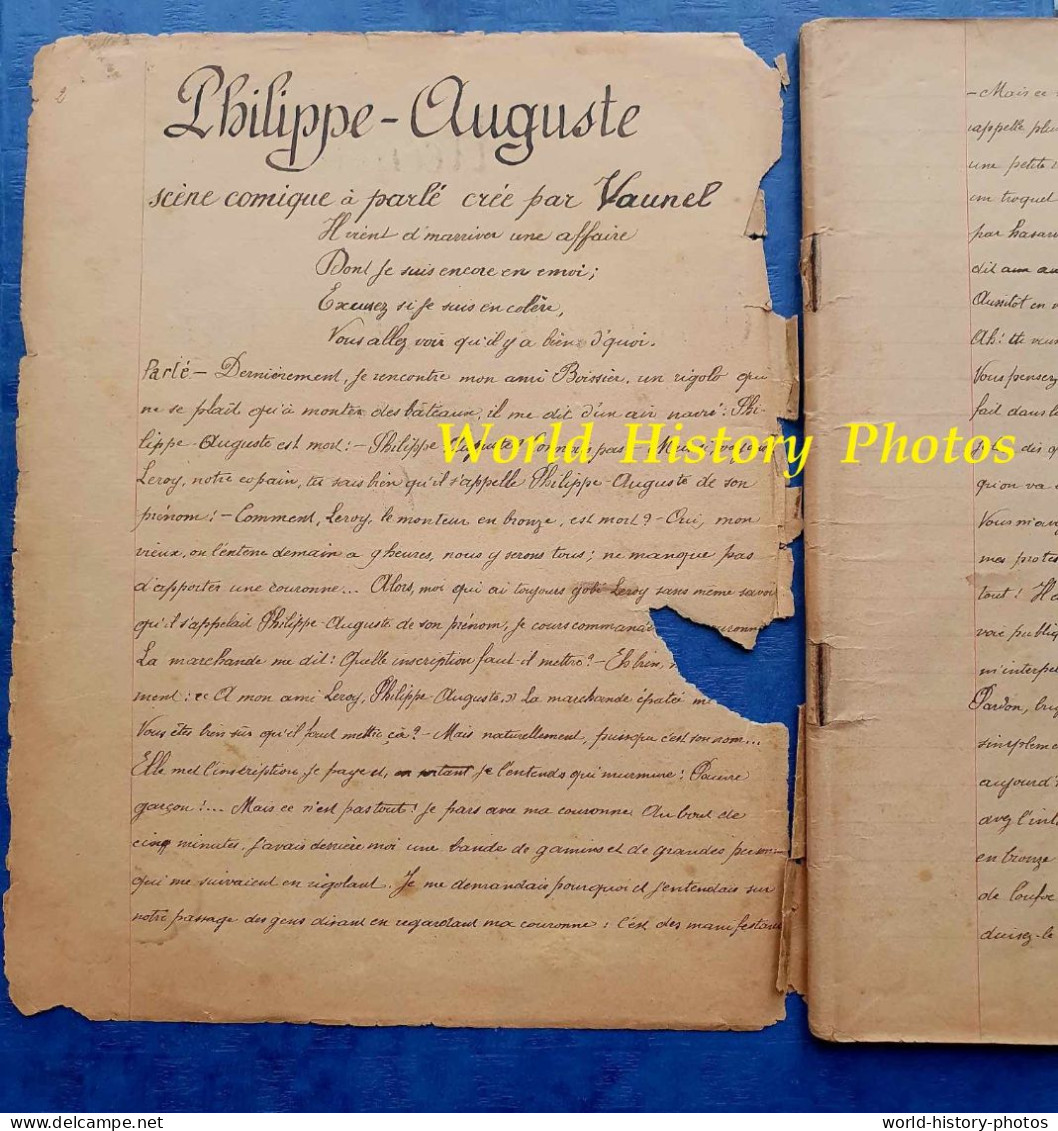 2
Philippe-Auguste
scène comique à parlé crée par Vaunel
Il vient d'marriver une affaire
Dont je suis encore en emoi;
Excusez si je suis en colère,
Vous allez voir qu'il y a bien d'quoi.
Parlé — Dernièrement, je rencontre mon ami Boissier, un rigolo qui
ne se plaît qu'à monter des bâteaux, il me dit d'un air navré: Phi-
lippe-Auguste est mort: — Philippe Auguste?
Leroy, notre copain, tu sais bien qu'il s'appelle Philippe-Auguste de son
prénom! — Comment, Leroy, le monteur en bronze, est mort? — Oui, mon
vieux, on l'enterre demain a 9 heures, nous y serons tous; ne manque pas
d'apporter une couronne... Alors, moi qui ai toujours gobé Leroy sans même savoir
qu'il s'appelait Philippe-Auguste de son prénom, je cours command
La marchande me dit: Quelle inscription faut-il mettre? — Eh bien,
ment: « A mon ami Leroy, Philippe-Auguste. » La marchande épatée me
Vous êtes bien sûr qu'il faut mettre ça? — Mais naturellement, puisque c'est son nom...
Elle met l'inscription, je paye et, en sortant je l'entends qui murmure: Pauvre
garçon!... Mais ce n'est pas tout! Je pars avec ma couronne. Au bout de
cinq minutes, j'avais derrière moi une bande de gamins et de grandes person
qui me suivaient en rigolant. Je me demandais pourquoi et j'entendais sur
notre passage des gens disant en regardant ma couronne: C'est des manifestan
— Mais ce
appelle plu
une petite
un troquet
par hasar
dit
Aussitot en
Ah! tte
Vous pensez
fait dans le
dis q
qu'on va
Vous m'av
mes protes
tout! Ha
voie publiq
m'interpe
Pardon, brig
simpleme
aujourd'
avez l'int
en bronze
de loufoc
duisez-le
World History Photos
delcampe.net
world-history-photos